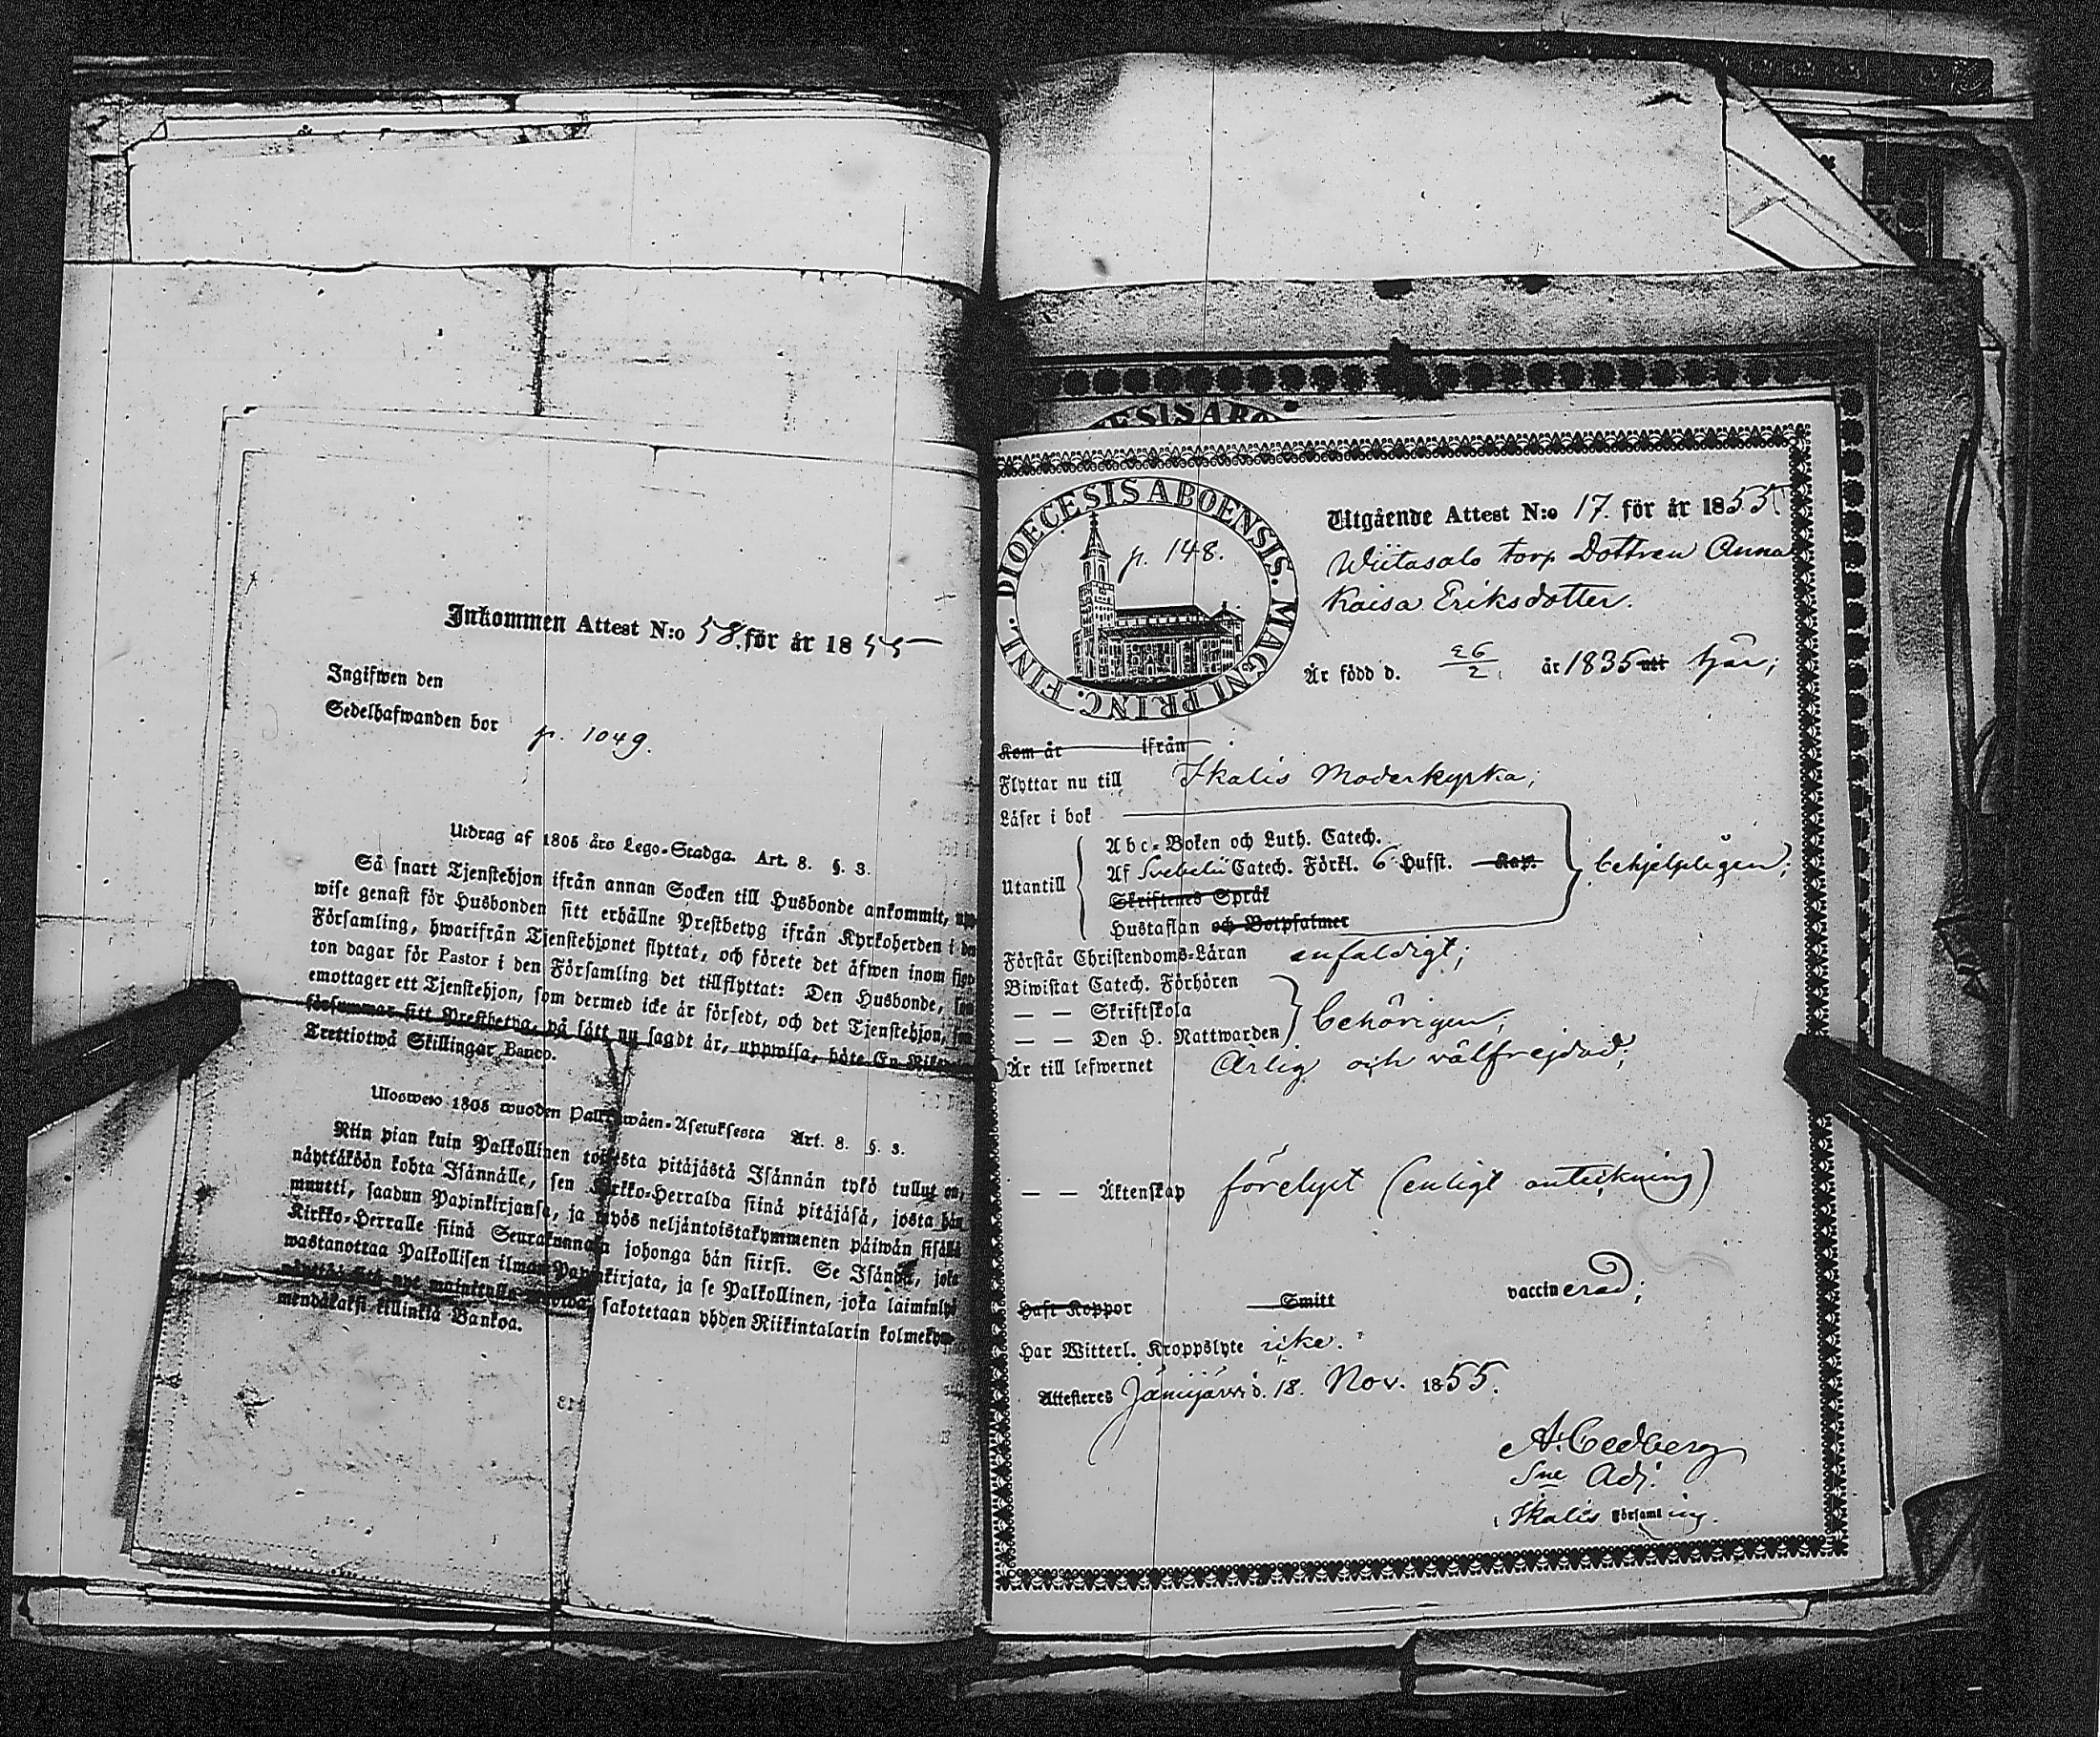 Inkommen Attest N:o 58. för år 1855
Ingifwen den
Sedelhafwanden bor p. 1049.
Utdrag af 1805 års Lego-Stadga. Art. 8. §. 3.
Så snart Tjenstehjon ifrån annan Socken till Husbonde ankommit,
wise genast för Husbonden sitt erhållne Prestbetyg ifrån Kyrkoherden i
Församling, hwarifrån Tjenstehjonet flyttat, och förete det äfwen inom
ton dagar för Pastor i den Församling det tillflyttat: Den Husbonde,
emottager ett Tjenstehjon, som dermed icke är försedt, och det Tjenstehjon,
försummar sitt Prestbetyg, på sätt nu sagdt är, uppwisa, böte En
Trettiotwå Skillingar Banco.
Ulosweto 1805 wuoden Asetuksesta Art. 8. §. 3.
Niin pian kuin Palkollinen toisesta pitäjästä Isännän tykö tullut on,
näyttäköön kohta Isännälle, sen Kirkko-Herralda siinä pitäjäsä, josta hän
muutti, saadun Papinkirjansa, ja myös neljäntoistakymmenen päiwän sisällä
Kirkko-Herralle siinä Seurakunnasa johonga hän siirsi. Se Isändä, joka
wastanottaa Palkollisen ilman Papinkirjata, ja se Palkollinen, joka laiminlyö
sakotetaan yhden Riikintalarin kolmekym-
mendäkaksi killinkiä Bankoa.
ESIS ABO
DIOECESIS ABOENSIS. MAGNI PRINC. FINL.
p. 148.
Utgående Attest N:o 17. för år 1855
Wiitasalo torp Dottren Anna
Kaisa Eriksdotter.
Är född d. 26/2. år 1835 uti här;
Kom år ifrån
Flyttar nu till Ikalis Moderkyrka;
Läser i bok
Utantill
Abc-Boken och Luth. Catech.
Af Svebelii Catech. Förkl. 6 Hufst. Kap.
Skriftenes Språk
Hustaflan och Botpsalmer
behjelpligen;
Förstår Christendoms-Läran enfaldigt;
Biwistat Catech. Förhören
— — Skriftskola
— — Den H. Nattwarden
behörigen;
Är till lefwernet Ärlig och välfrejdad;
— — Äktenskap förelyst (enligt anteckning)
Haft Koppor Smitt vaccinerad;
Har Witterl. Kroppslyte icke.
Attesteras Jämijärvi d. 18. Nov. 1855.
A. Cedberg
Sne Adj.
i Ikalis Församling.